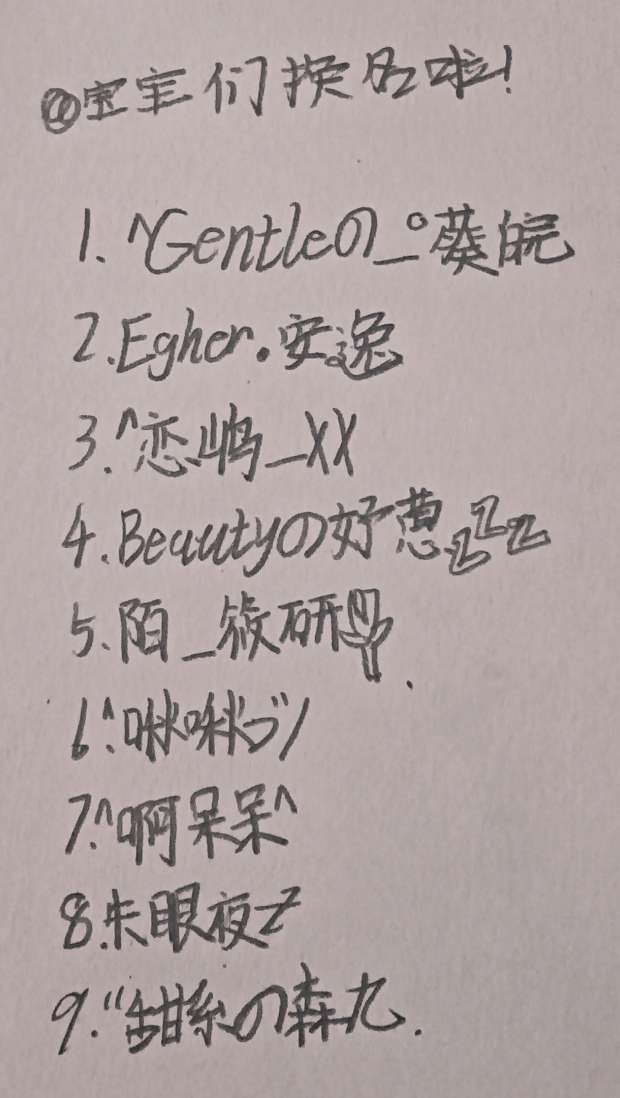 @宝宝们换名啦!
1.^Gentleの_°葵皖
2.Egher.安逸
3.^恋鸠_XX
4.Beautyの好葸zZz
5.陌_筱研
6.^啾啾づ
7.^啊呆呆^
8.失眠夜Z
9."甜系の森九.